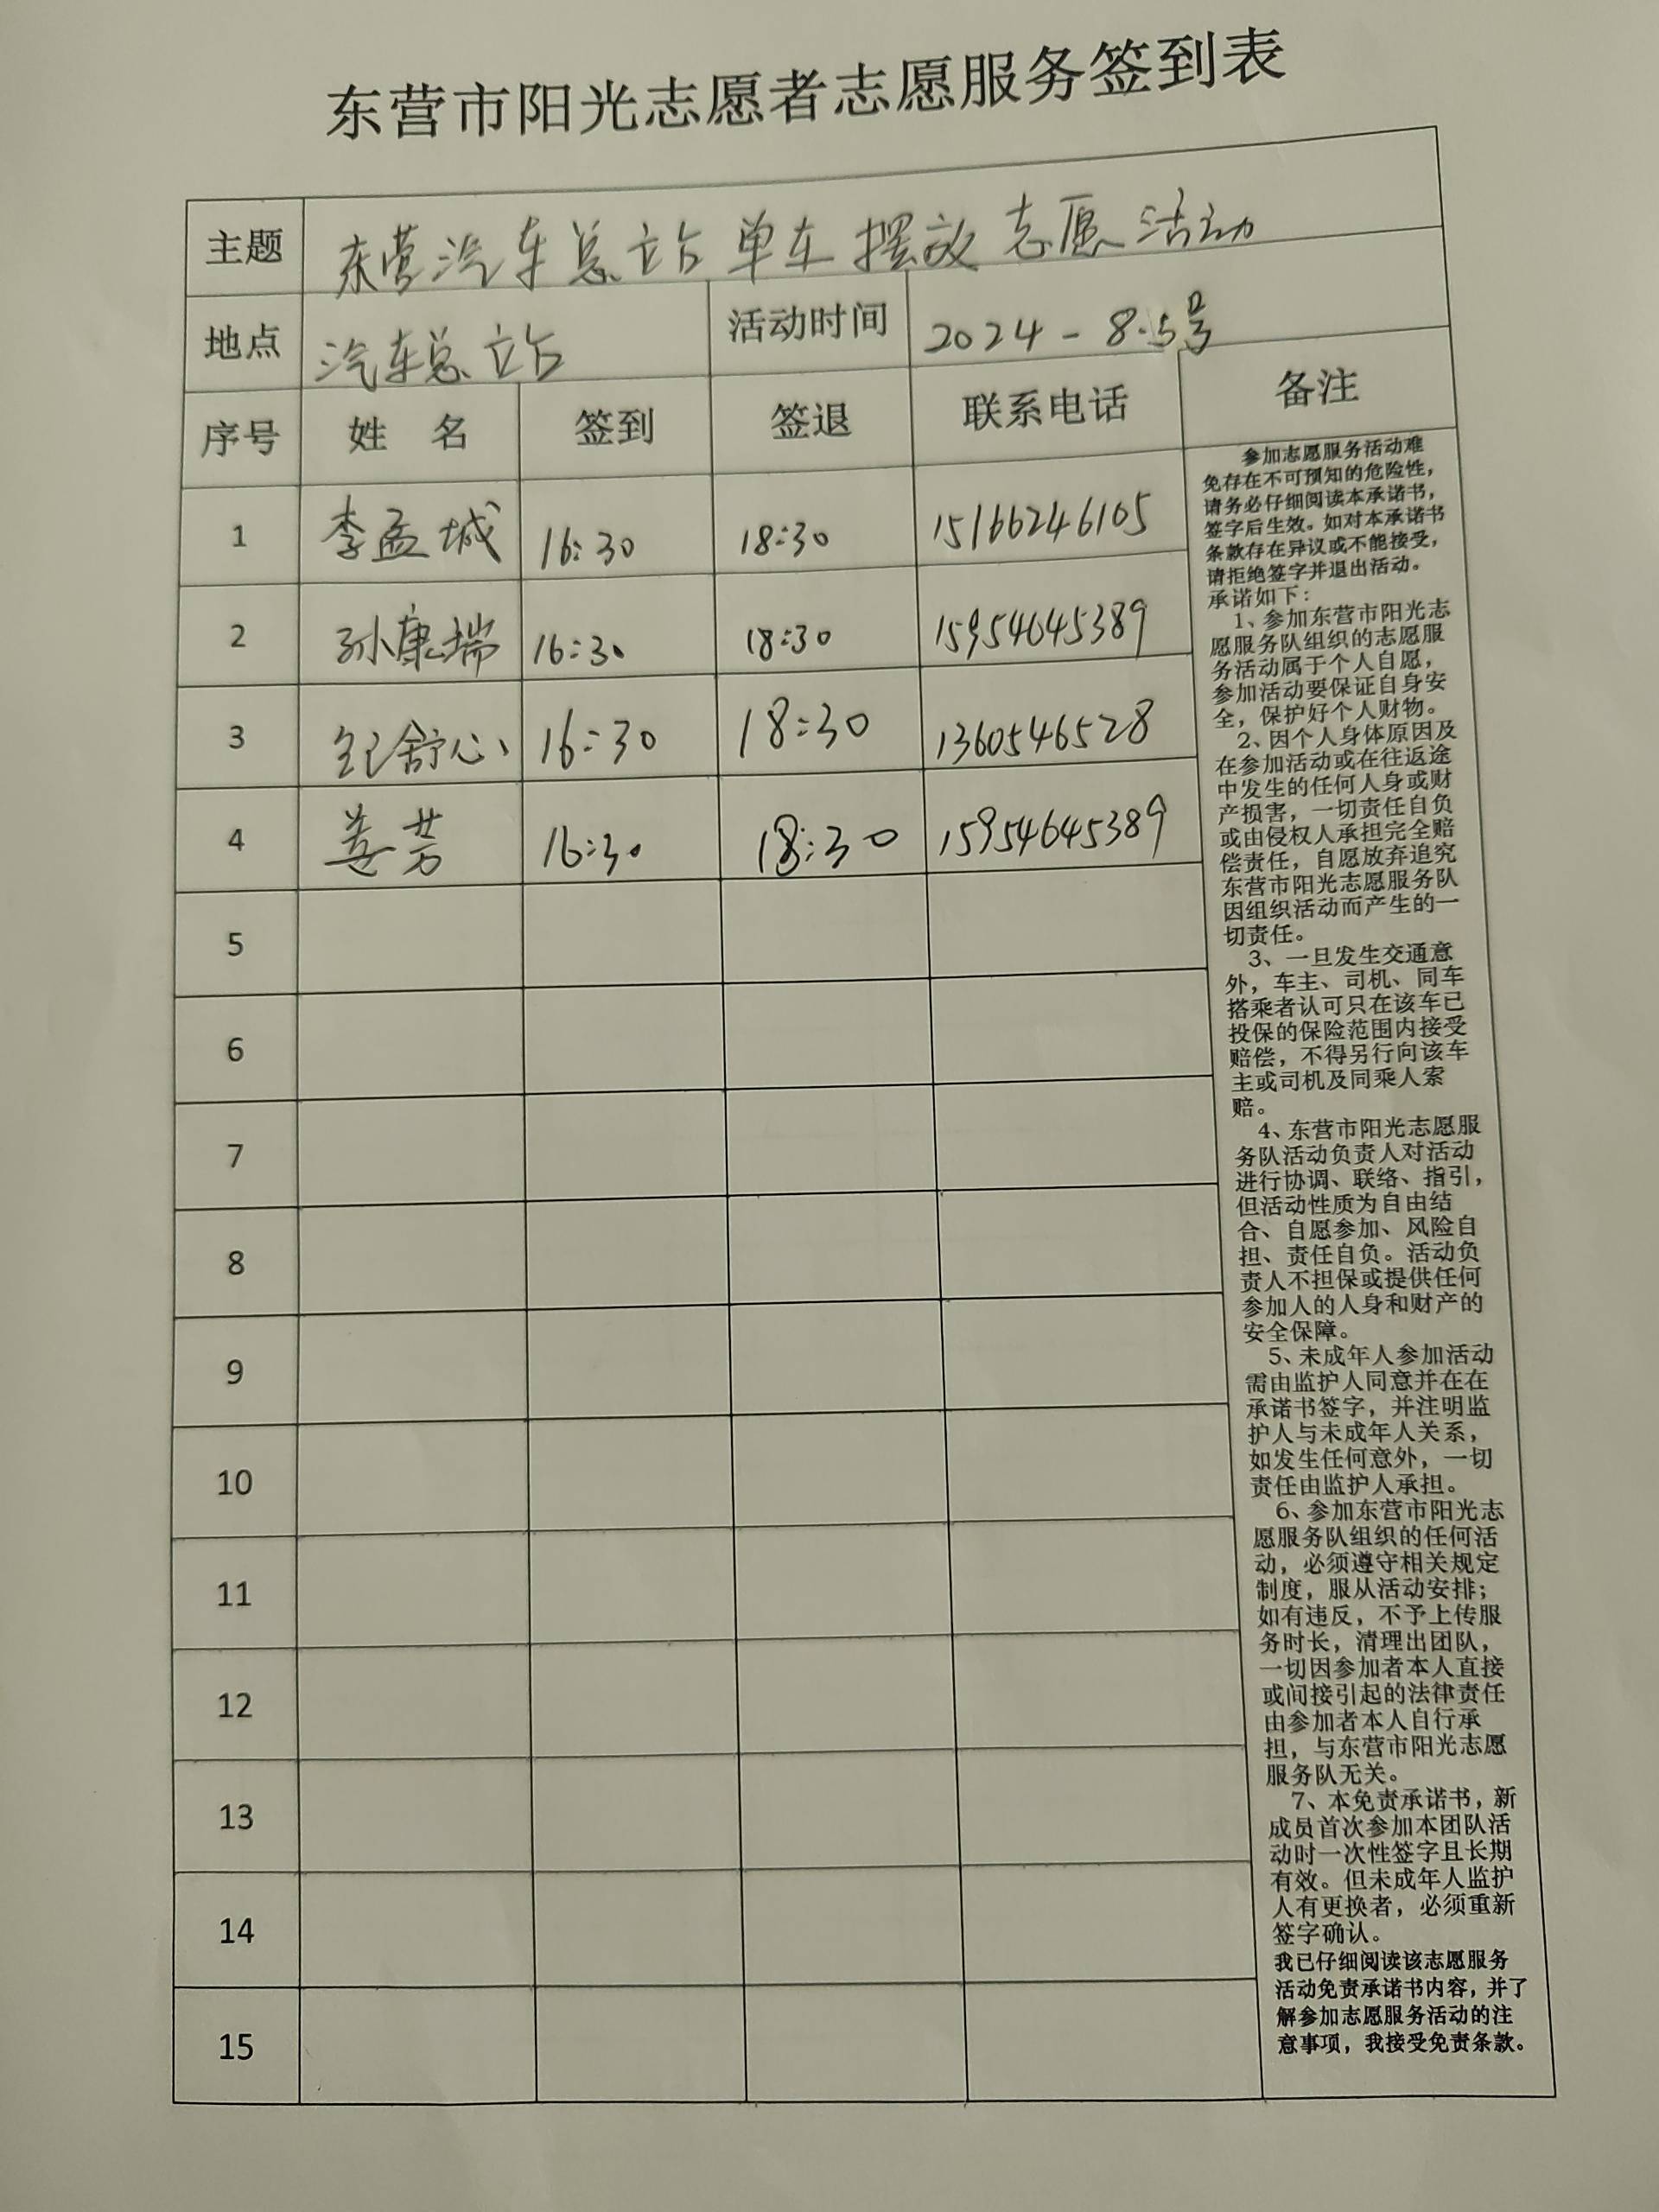 东营市阳光志愿者志愿服务签到表
主题 东营汽车总站单车摆放志愿活动
地点 汽车总站 活动时间 2024-8.5号
序号 姓 名 签到 签退 联系电话 备注
1 李孟城 16:30 18:30 15166246105
2 孙康瑞 16:30 18:30 15954645389
3 纪舒心 16:30 18:30 1360546528
4 姜芳 16:30 18:30 15954645389
5
6
7
8
9
10
11
12
13
14
15
参加志愿服务活动难
免存在不可预知的危险性，
请务必仔细阅读本承诺书，
签字后生效。如对本承诺书
条款存在异议或不能接受，
请拒绝签字并退出活动。
承诺如下：
1、参加东营市阳光志
愿服务队组织的志愿服
务活动属于个人自愿，
参加活动要保证自身安
全，保护好个人财物。
2、因个人身体原因及
在参加活动或在往返途
中发生的任何人身或财
产损害，一切责任自负
或由侵权人承担完全赔
偿责任，自愿放弃追究
东营市阳光志愿服务队
因组织活动而产生的一
切责任。
3、一旦发生交通意
外，车主、司机、同车
搭乘者认可只在该车已
投保的保险范围内接受
赔偿，不得另行向该车
主或司机及同乘人索
赔。
4、东营市阳光志愿服
务队活动负责人对活动
进行协调、联络、指引，
但活动性质为自由结
合、自愿参加、风险自
担、责任自负。活动负
责人不担保或提供任何
参加人的人身和财产的
安全保障。
5、未成年人参加活动
需由监护人同意并在在
承诺书签字，并注明监
护人与未成年人关系，
如发生任何意外，一切
责任由监护人承担。
6、参加东营市阳光志
愿服务队组织的任何活
动，必须遵守相关规定
制度，服从活动安排；
如有违反，不予上传服
务时长，清理出团队，
一切因参加者本人直接
或间接引起的法律责任
由参加者本人自行承
担，与东营市阳光志愿
服务队无关。
7、本免责承诺书，新
成员首次参加本团队活
动时一次性签字且长期
有效。但未成年人监护
人有更换者，必须重新
签字确认。
我已仔细阅读该志愿服务
活动免责承诺书内容，并了
解参加志愿服务活动的注
意事项，我接受免责条款。